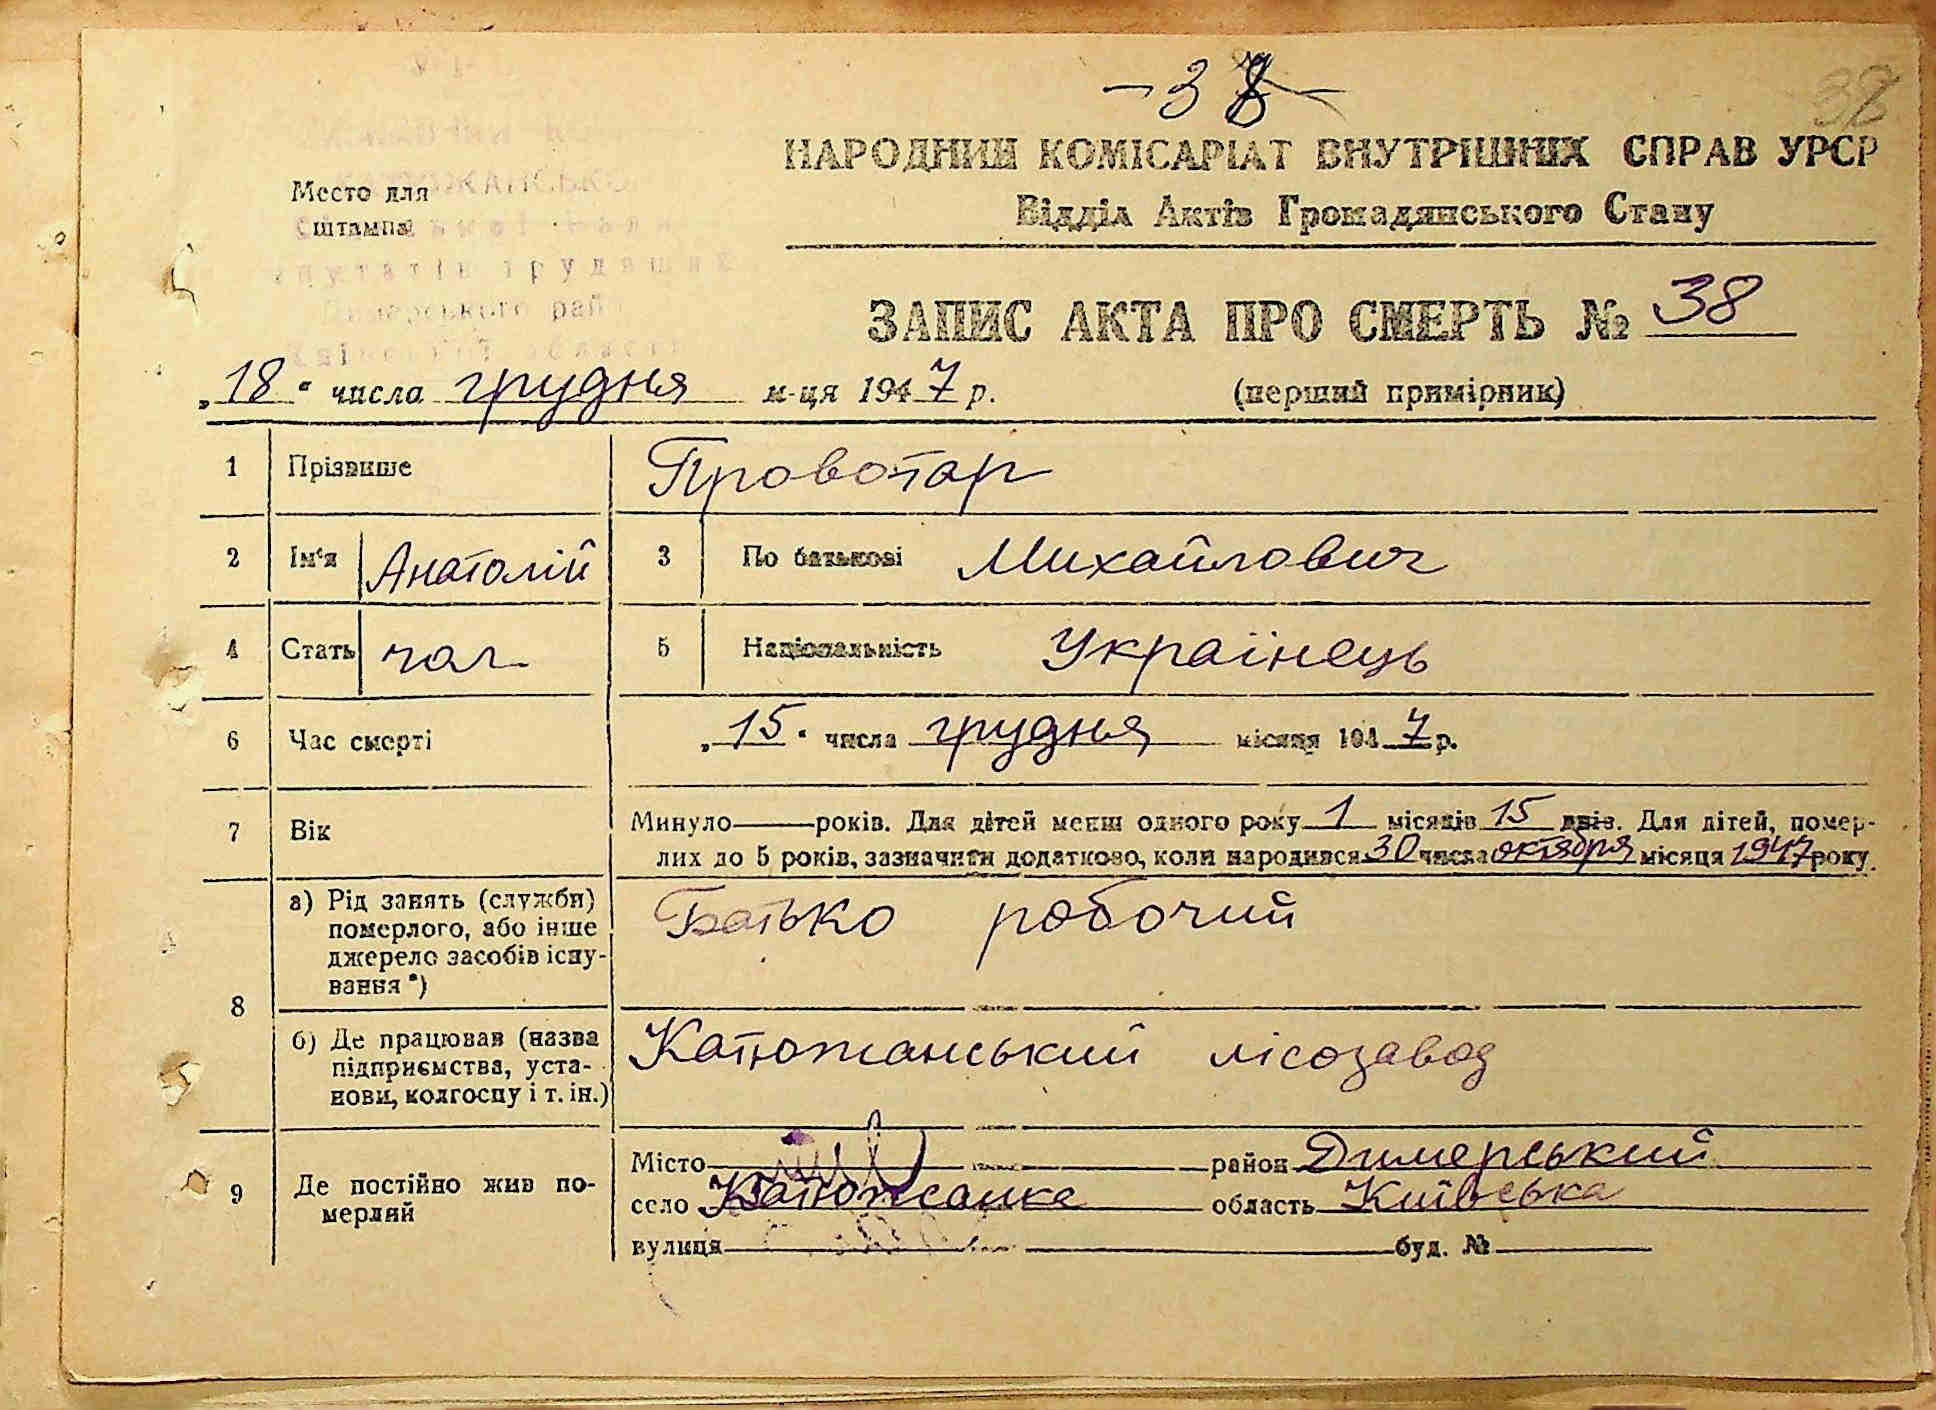 38
38
НАРОДНИЙ КОМІСАРІАТ ВНУТРІШНІХ СПРАВ УРСР
Відділ Актів Громадянського Стану
Место для
штампа
депутатів трудящих
Димерського рай
Київської області
ЗАПИС АКТА ПРО СМЕРТЬ № 38
„18“ числа грудня м-ця 1947 р. (перший примірник)
1 Прізвище Провотар
2 Ім'я Анатолій 3 По батькові Михайлович
4 Стать чол. 5 Національність Українець
6 Час смерті „15“ числа грудня місяця 1947 р.
7 Вік Минуло — років. Для дітей менш одного року 1 місяців 15 днів. Для дітей, помер-
лих до 5 років, зазначити додатково, коли народився 30 числа октября місяця 1947 року.
8 а) Рід занять (служби)
померлого, або інше
джерело засобів існу-
вання*)
Батько робочий
б) Де працював (назва
підприємства, уста-
нови, колгоспу і т. ін.)
Катюжанський лісозавод
9 Де постійно жив по-
мерлий
Місто район Димерський
село Катюжанка область Київська
вулиця буд. №